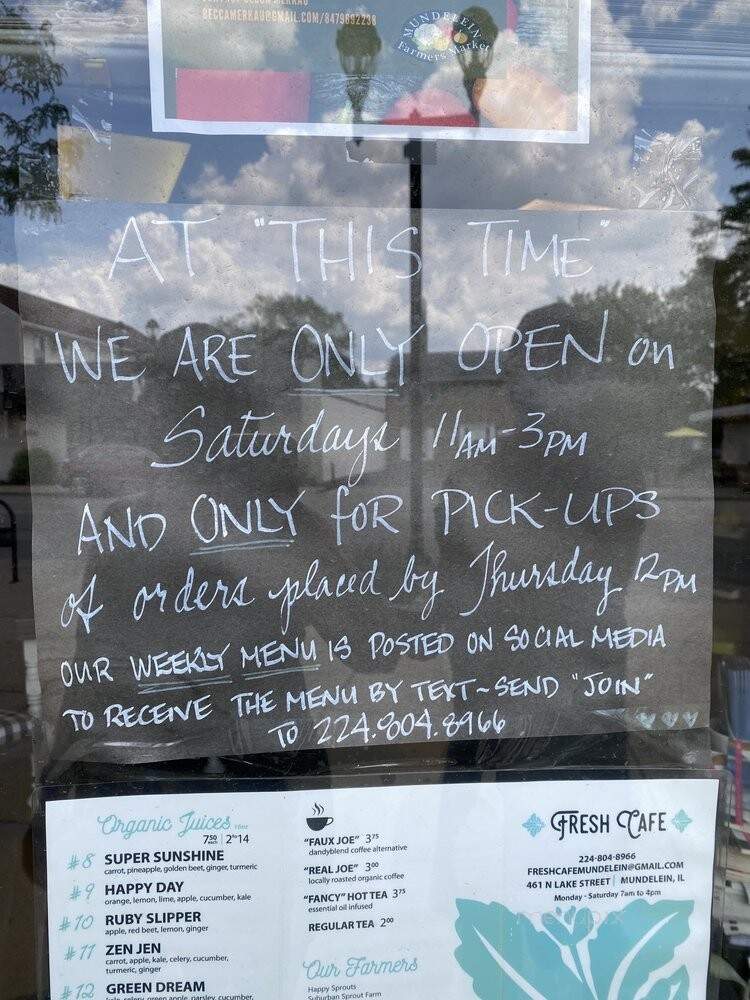 BECCAMERKAU@GMAIL.COM/8479892238
MUNDELEIN
Farmers Market
AT "THIS TIME"
WE ARE ONLY OPEN on
Saturdays 11AM-3PM
AND ONLY for PICK-UPS
of orders placed by Thursday 12PM
OUR WEEKLY MENU IS POSTED ON SOCIAL MEDIA
TO RECEIVE THE MENU BY TEXT~SEND "JOIN"
TO 224.804.8966
Organic Juices 16oz
7.50 each | 2 for 14
#8 SUPER SUNSHINE
carrot, pineapple, golden beet, ginger, turmeric
#9 HAPPY DAY
orange, lemon, lime, apple, cucumber, kale
#10 RUBY SLIPPER
apple, red beet, lemon, ginger
#11 ZEN JEN
carrot, apple, kale, celery, cucumber,
turmeric, ginger
#12 GREEN DREAM
kale, celery, green apple, parsley, cucumber,
"FAUX JOE" 3.75
dandyblend coffee alternative
"REAL JOE" 3.00
locally roasted organic coffee
"FANCY" HOT TEA 3.75
essential oil infused
REGULAR TEA 2.00
Our Farmers
Happy Sprouts
Suburban Sprout Farm
FRESH CAFE
224-804-8966
FRESHCAFEMUNDELEIN@GMAIL.COM
461 N LAKE STREET | MUNDELEIN, IL
Monday - Saturday 7am to 4pm